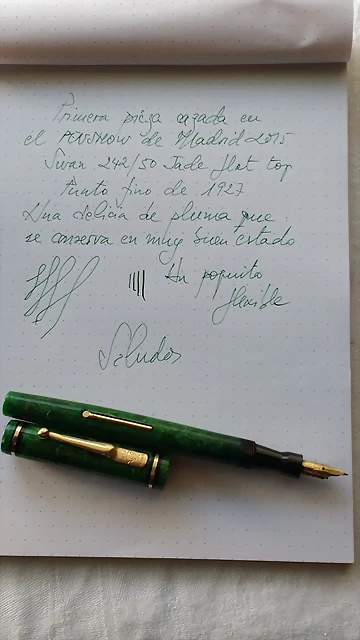 Primera pieza cazada en
el PENSHOW de Madrid 2015
Swan 242/50 Jade flat top
Punto fino de 1927
Una delicia de pluma que
se conserva en muy buen estado
Un poquito
flexible
Saludos